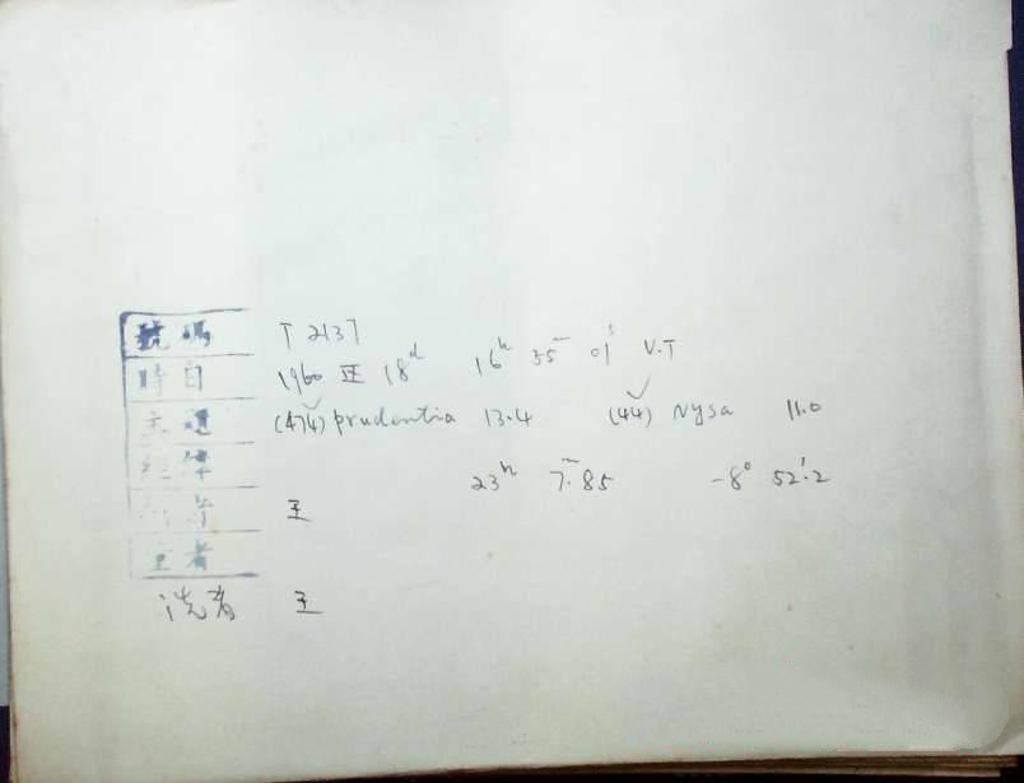 號碼 T 2137
時日 1960 IX 18ᵈ 16ʰ 35ᵐ 01ˢ U.T
主題 (474) prudentia 13.4 (44) Nysa 11.0
經緯 23ʰ 7ᵐ.85 -8° 52'.2
王
者
洗者 王